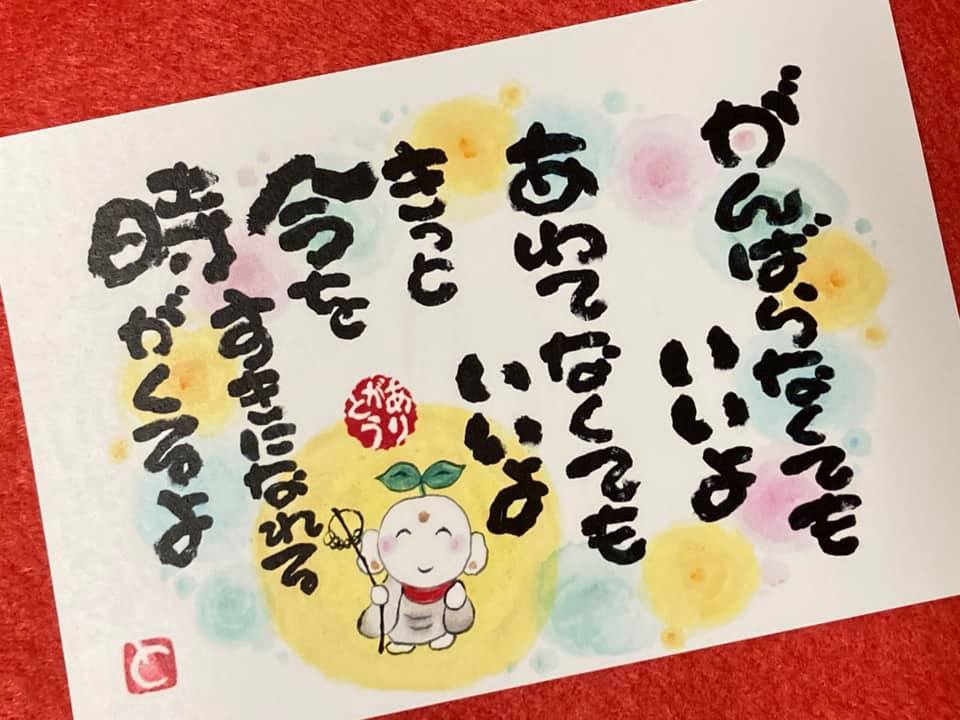 がんばらなくても
いいよ
あわてなくても
いいよ
きっと
今を
すきになれる
時がくるよ
あり
がとう
と